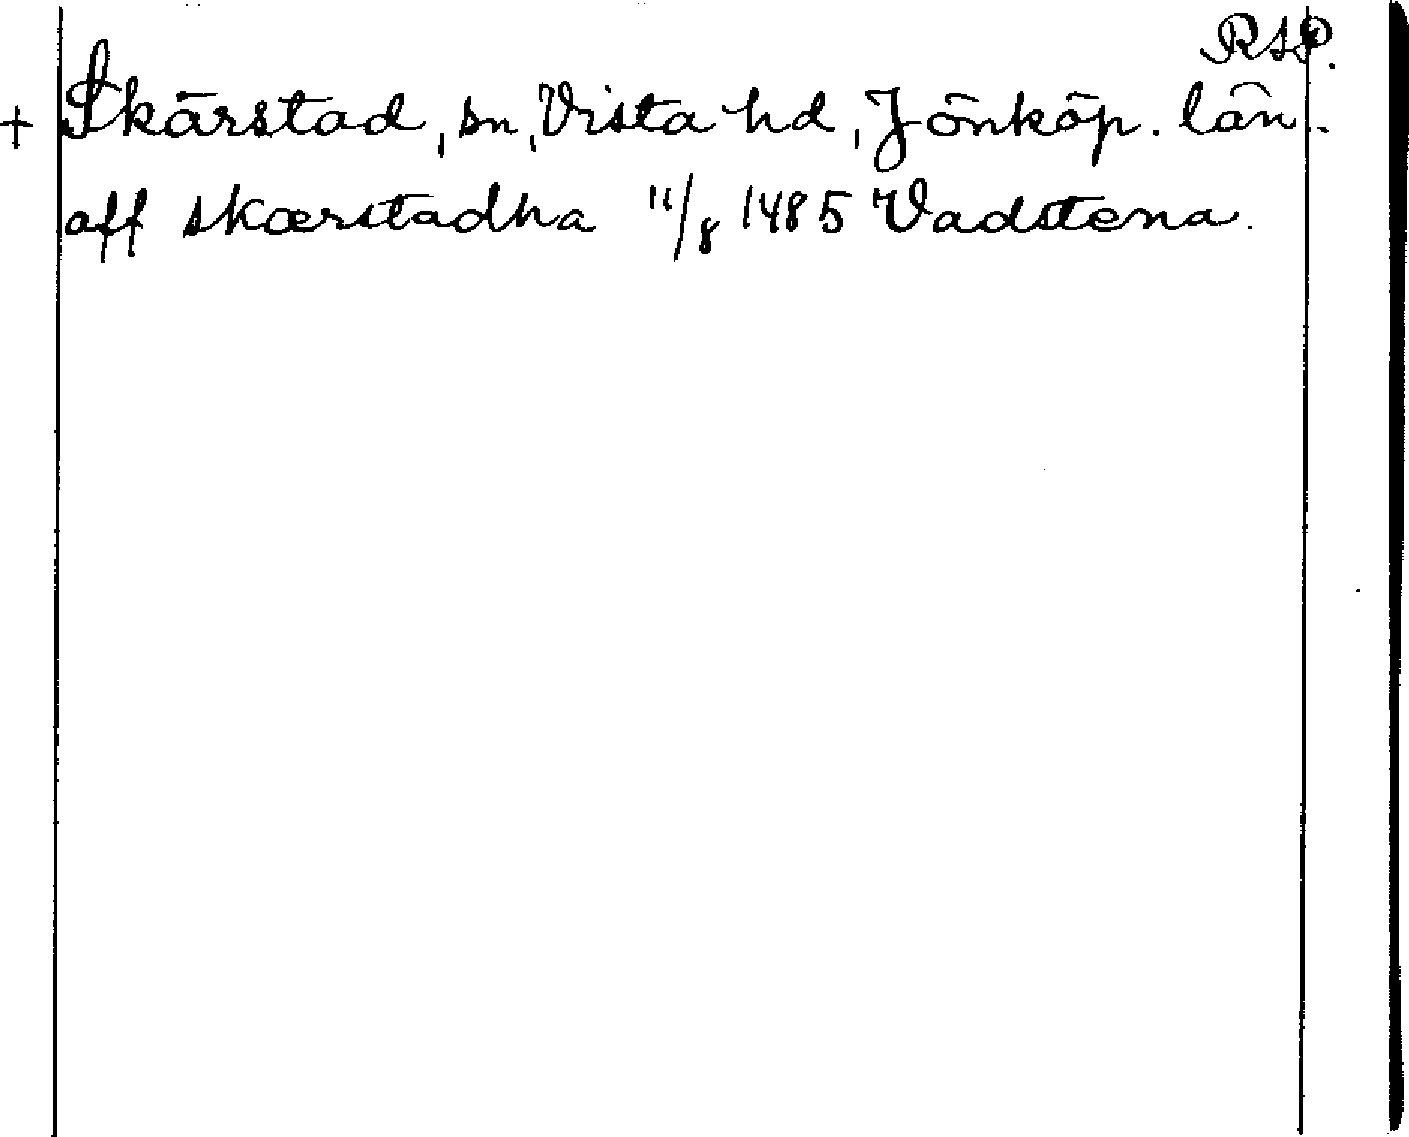 RAP.
+ Skärstad, sn, Vista hd, Jönköp. län.
aff skærstadha 11/8 1485 Vadstena.